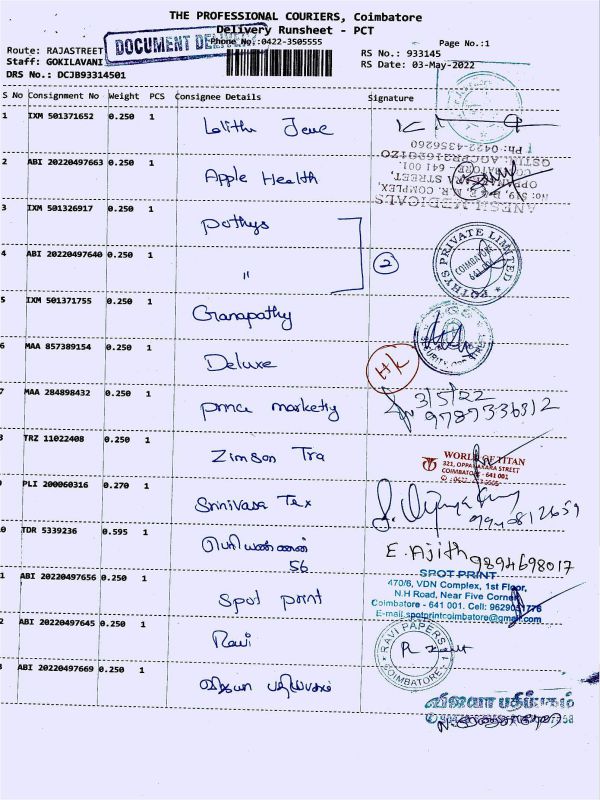 THE PROFESSIONAL COURIERS, Coimbatore
Delivery Runsheet - PCT
DOCUMENT
Phone No.:0422-3505555
Page No.:1
Route: RAJASTREET
RS No.: 933145
Staff: GOKILAVANI
RS Date: 03-May-2022
DRS No.: DCJB93314501
S No Consignment No Weight PCS Consignee Details Signature
1 IXM 501371652 0.250 1 Lalitha
Ph: 0422-4356260
GSTIN:
COIMBATORE - 641 001.
OPPANAKARA STREET,
NO: 519, R. COMPLEX,
MEDICALS
2 ABI 20220497663 0.250 1 Apple Health
3 IXM 501326917 0.250 1 pothys
4 ABI 20220497640 0.250 1 "
2
POTHYS PRIVATE LIMITED
COIMBATORE
641 001
5 IXM 501371755 0.250 1 Ganapathy
6 MAA 857389154 0.250 1 Deluxe
HK
7 MAA 284898432 1 prince marketing
3/5/22
9787336312
TRZ 11022408 0.250 1 Zimson Tra
WORLD OF TITAN
321, OPPANAKARA STREET
COIMBATORE - 641 001
9 PLI 200060316 0.270 1 Srinivasa Tex
9940812659
0 TDR 5339236 0.595 1 பெரியண்ணன்
56
E. Ajith 9894698017
1 ABI 20220497656 0.250 1 Spot point
SPOT PRINT
470/6, VDN Complex, 1st Floor,
N.H Road, Near Five Corner
Coimbatore - 641 001. Cell: 9629051776
E-mail.spotprintcoimbatore@gmail.com
2 ABI 20220497645 0.250 1 Ravi
RAVI PAPERS
COIMBATORE - 1
3 ABI 20220497669 0.250 1 விஜயா பதிப்பகம்
விஜயா பதிப்பகம்